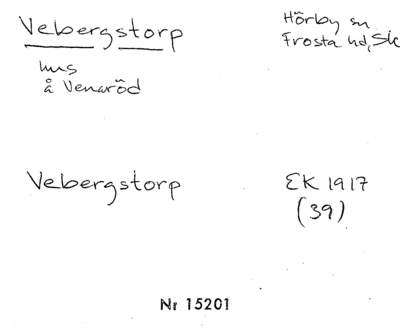 Vebergstorp
Hörby sn
Frosta hd, Sk
hus
å Venaröd
Vebergstorp
EK 1917
(39)
Nr 15201